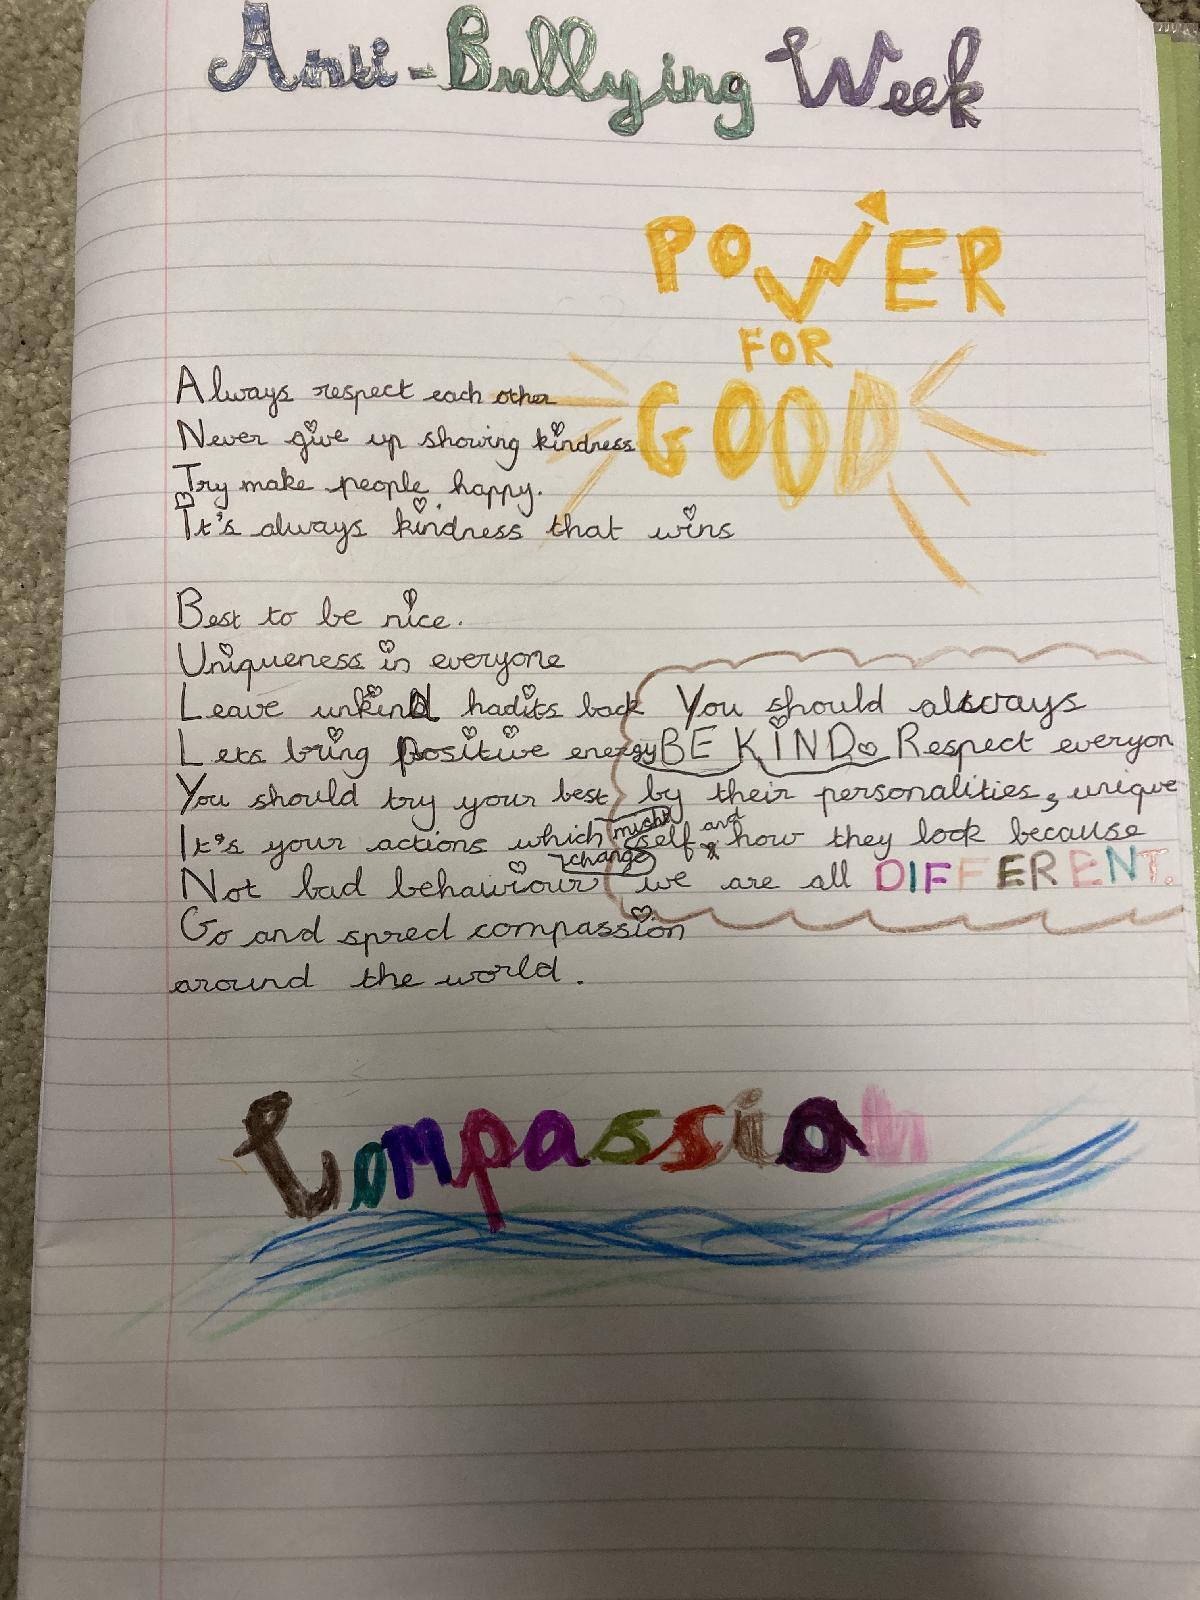 Anti-Bullying Week
POWER
FOR
GOOD
Always respect each other
Never give up showing kindness
Try make people happy.
It's always kindness that wins
Best to be nice.
Uniqueness in everyone
Leave unkind hadits back
Lets bring positive energy
You should try your best
It's your actions which might change
Not bad behaviour
Go and spred compassion
around the world.
You should always
BE KIND Respect everyon
by their personalities, unique
self and how they look because
we are all DIFFERENT.
Compassion